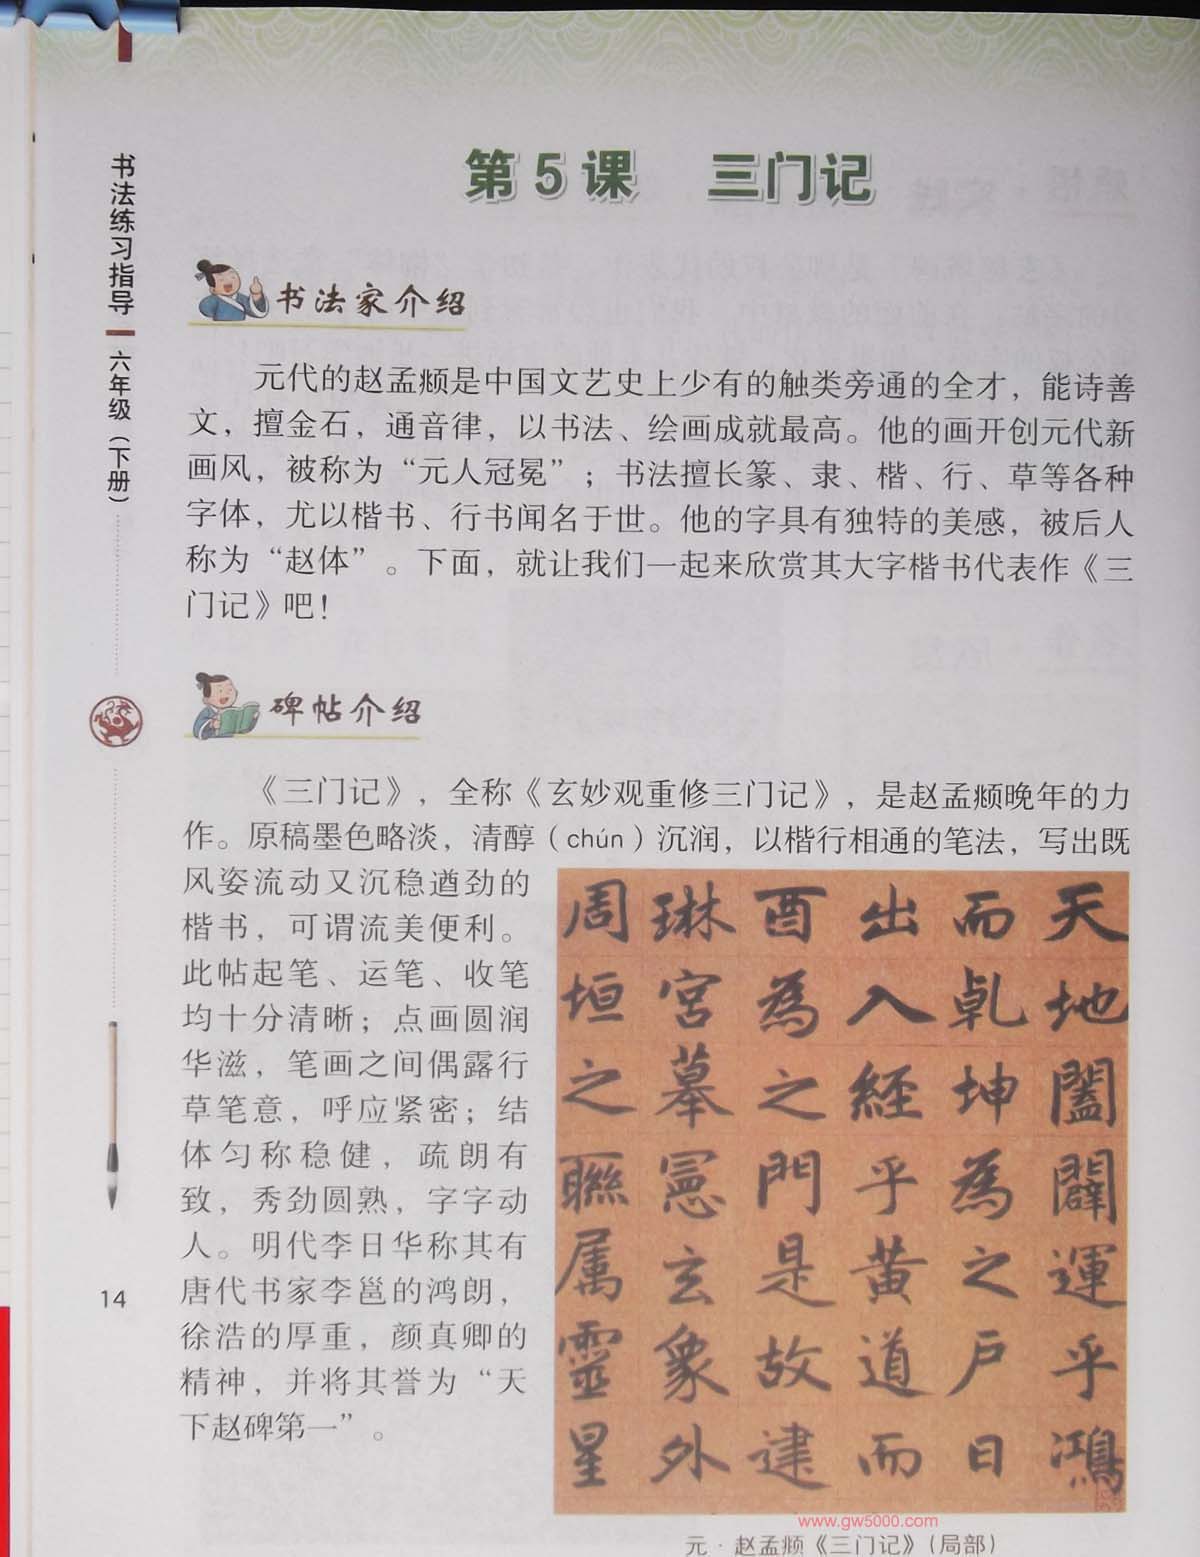 书法练习指导
六年级（下册）
14
第5课 三门记
书法家介绍
元代的赵孟頫是中国文艺史上少有的触类旁通的全才，能诗善
文，擅金石，通音律，以书法、绘画成就最高。他的画开创元代新
画风，被称为“元人冠冕”；书法擅长篆、隶、楷、行、草等各种
字体，尤以楷书、行书闻名于世。他的字具有独特的美感，被后人
称为“赵体”。下面，就让我们一起来欣赏其大字楷书代表作《三
门记》吧！
碑帖介绍
《三门记》，全称《玄妙观重修三门记》，是赵孟頫晚年的力
作。原稿墨色略淡，清醇（chún）沉润，以楷行相通的笔法，写出既
风姿流动又沉稳遒劲的
楷书，可谓流美便利。
此帖起笔、运笔、收笔
均十分清晰；点画圆润
华滋，笔画之间偶露行
草笔意，呼应紧密；结
体匀称稳健，疏朗有
致，秀劲圆熟，字字动
人。明代李日华称其有
唐代书家李邕的鸿朗，
徐浩的厚重，颜真卿的
精神，并将其誉为“天
下赵碑第一”。
天地闔闢運乎鴻
而乹坤為之戶日
出入經乎黄道而
酉為之門是故建
琳宮摹憲玄象外
周垣之聮属靈星
www.gw5000.com
元·赵孟頫《三门记》（局部）